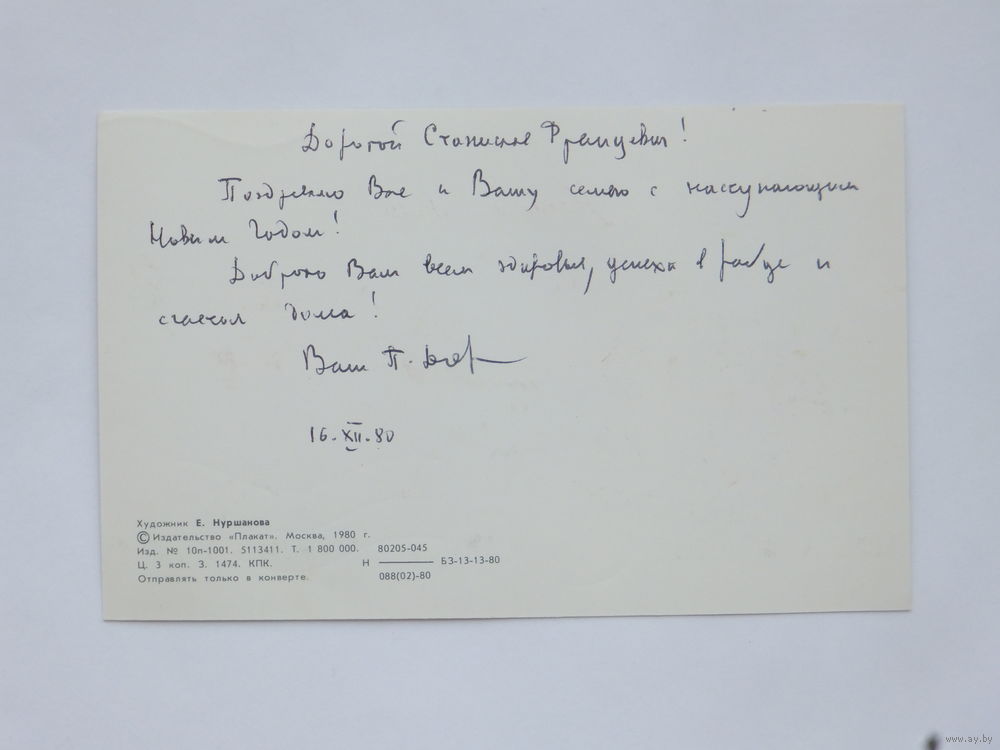 Дорогой Станислав Францевич!
Поздравляю Вас и Вашу семью с наступающим
Новым Годом!
Доброго Вам всем здоровья, успеха в работе и
счастья дома!
Ваш П.
16-XII-80
Художник Е. Нуршанова
© Издательство «Плакат». Москва, 1980 г.
Изд. № 10п-1001. 5113411. Т. 1 800 000.
Ц. 3 коп. З. 1474. КПК.
Отправлять только в конверте.
80205-045
Н ——— БЗ-13-13-80
088(02)-80
www.ay.by